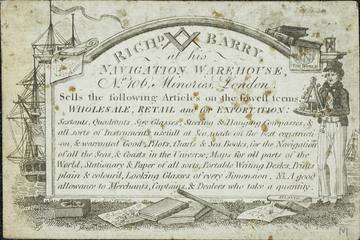 RICHD. BARRY,
at his
NAVIGATION WAREHOUSE,
No. 106, Minories, London.
Sells the following Articles on the lowest terms
WHOLESALE, RETAIL and for EXPORTATION:
Sextants, Quadrants, Spy Glasses, Steering & Hanging Compasses, &
all sorts of Instruments useful at Sea, made on the best constructi-
on, & warranted Good; Pilots, Charts & Sea Books, for the Navigation
of all the Seas, & Coasts in the Universe; Maps for all parts of the
World, Stationary & Paper of all sorts, Portable Writing Desks, Prints
plain & colour'd, Looking Glasses of every Dimension, NB. A good
allowance to Merchants, Captains, & Dealers who take a quantity.
THE WORLD
M